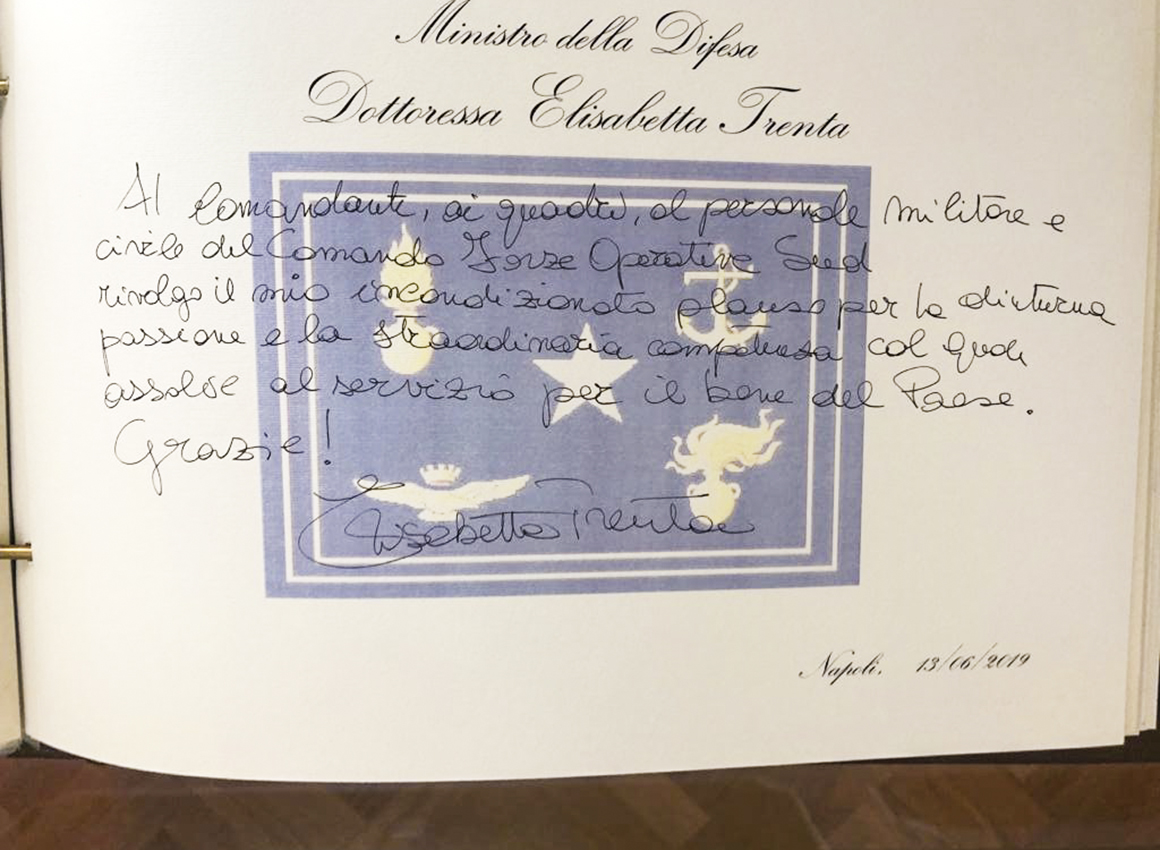 Ministro della Difesa
Dottoressa Elisabetta Trenta
Al Comandante, ai quadri, al personale militare e
civile del Comando Forze Operative Sud
rivolgo il mio incondizionato plauso per la diuturna
passione e la straordinaria competenza col quale
assolve al servizio per il bene del Paese.
Grazie!
Elisabetta Trenta
Napoli, 13/06/2019